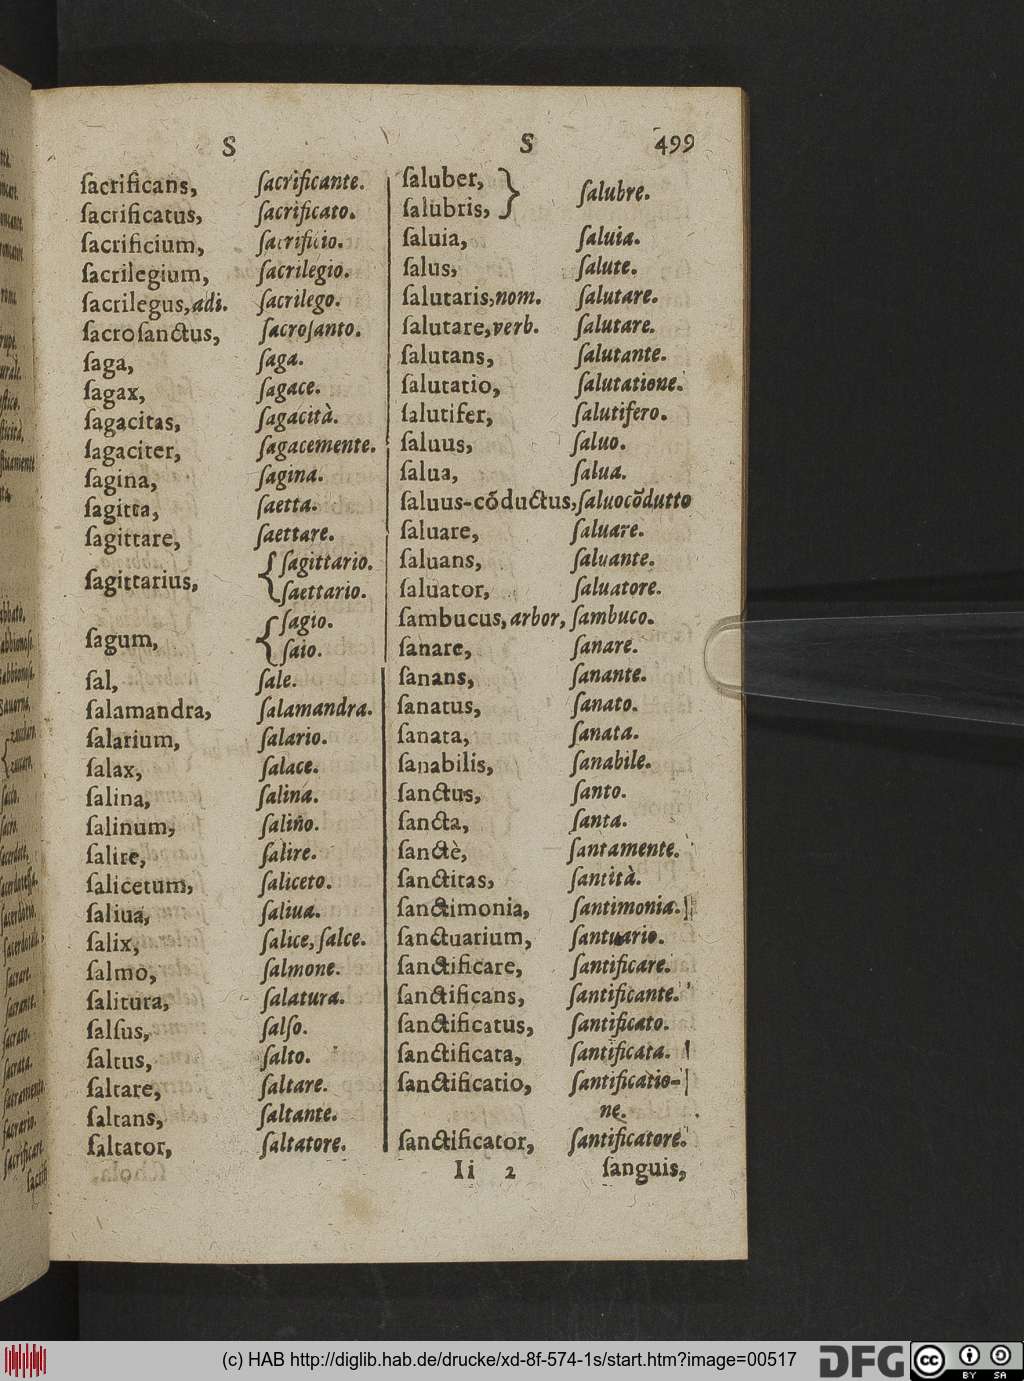 S S 499
ſacrificans, ſacrificante.
ſacrificatus, ſacrificato.
ſacrificium, ſacrificio.
ſacrilegium, ſacrilegio.
ſacrilegus, adi. ſacrilego.
ſacroſanctus, ſacroſanto.
ſaga, ſaga.
ſagax, ſagace.
ſagacitas, ſagacità.
ſagaciter, ſagacemente.
ſagina, ſagina.
ſagitta, ſaetta.
ſagittare, ſaettare.
ſagittarius, { ſagittario.
ſaettario.
ſagum, { ſagio.
ſaio.
ſal, ſale.
ſalamandra, ſalamandra.
ſalarium, ſalario.
ſalax, ſalace.
ſalina, ſalina.
ſalinum, ſalino.
ſalire, ſalire.
ſalicetum, ſaliceto.
ſaliua, ſaliua.
ſalix, ſalice, ſalce.
ſalmo, ſalmone.
ſalitura, ſalatura.
ſalſus, ſalſo.
ſaltus, ſalto.
ſaltare, ſaltare.
ſaltans, ſaltante.
ſaltator, ſaltatore.
ſaluber,
ſalubris, } ſalubre.
ſaluia, ſaluia.
ſalus, ſalute.
ſalutaris, nom. ſalutare.
ſalutare, verb. ſalutare.
ſalutans, ſalutante.
ſalutatio, ſalutatione.
ſalutifer, ſalutifero.
ſaluus, ſaluo.
ſalua, ſalua.
ſaluus-cōductus, ſaluocōdutto
ſaluare, ſaluare.
ſaluans, ſaluante.
ſaluator, ſaluatore.
ſambucus, arbor, ſambuco.
ſanare, ſanare.
ſanans, ſanante.
ſanatus, ſanato.
ſanata, ſanata.
ſanabilis, ſanabile.
ſanctus, ſanto.
ſancta, ſanta.
ſanctè, ſantamente.
ſanctitas, ſantità.
ſanctimonia, ſantimonia.
ſanctuarium, ſantuario.
ſanctificare, ſantificare.
ſanctificans, ſantificante.
ſanctificatus, ſantificato.
ſanctificata, ſantificata.
ſanctificatio, ſantificatio-
ne.
ſanctificator, ſantificatore.
Ii 2 ſanguis,
(c) HAB http://diglib.hab.de/drucke/xd-8f-574-1s/start.htm?image=00517
DFG
cc BY SA